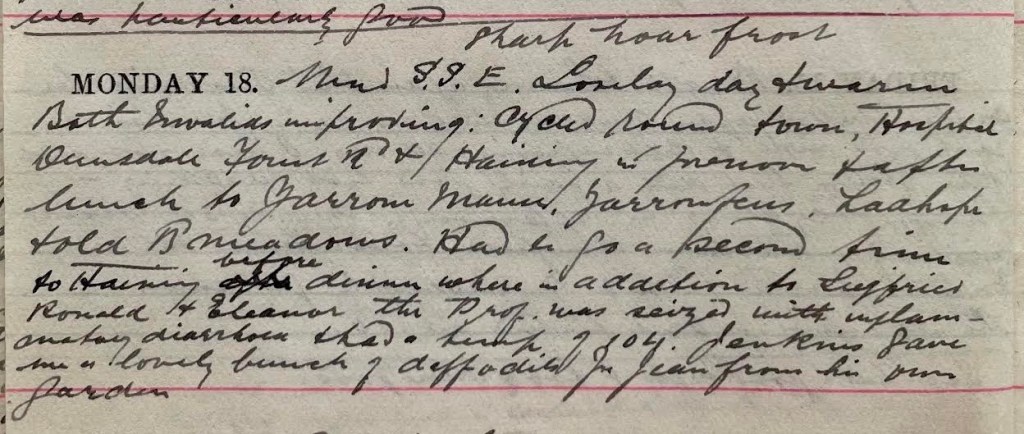 was particularly good
sharp hoar frost
MONDAY 18. Wind S.S.E. Lovely day & warm
Both Invalids improving: Cycled round town, Hospital
Dunsdale Forest Rd & Haining in forenoon & after
lunch to Yarrow Manse, Yarrowfeus, Ladhope
& old B meadows. Had to go a second time
to Haining before dinner where in addition to Siegfried
Ronald & Eleanor the Prof. was seized with inflam-
matory diarrhoea & had a temp of 104. Jenkins gave
me a lovely bunch of daffodils for Jean from his own
garden